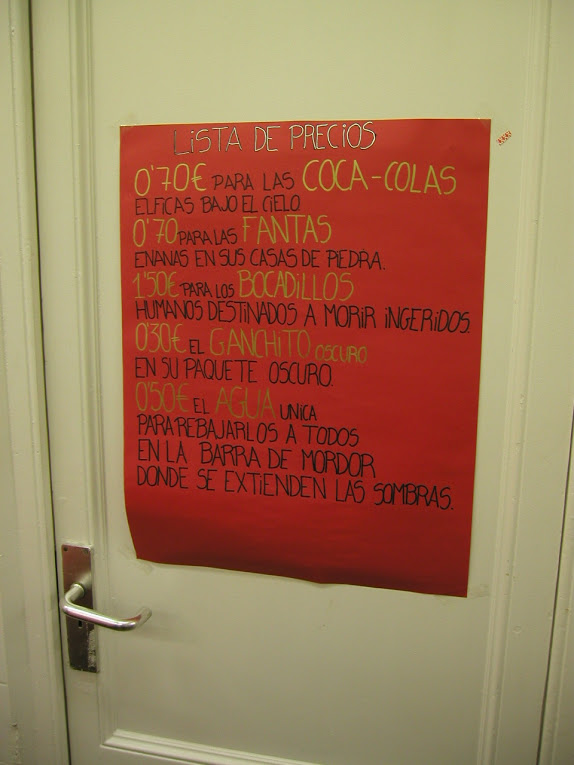 LISTA DE PRECIOS
0'70€ PARA LAS COCA-COLAS
ELFICAS BAJO EL CIELO
0'70 PARA LAS FANTAS
ENANAS EN SUS CASAS DE PIEDRA.
1'50€ PARA LOS BOCADILLOS
HUMANOS DESTINADOS A MORIR INGERIDOS.
0'30€ EL GANCHITO OSCURO
EN SU PAQUETE OSCURO.
0'50€ EL AGUA UNICA
PARA REBAJARLOS A TODOS
EN LA BARRA DE MORDOR
DONDE SE EXTIENDEN LAS SOMBRAS.